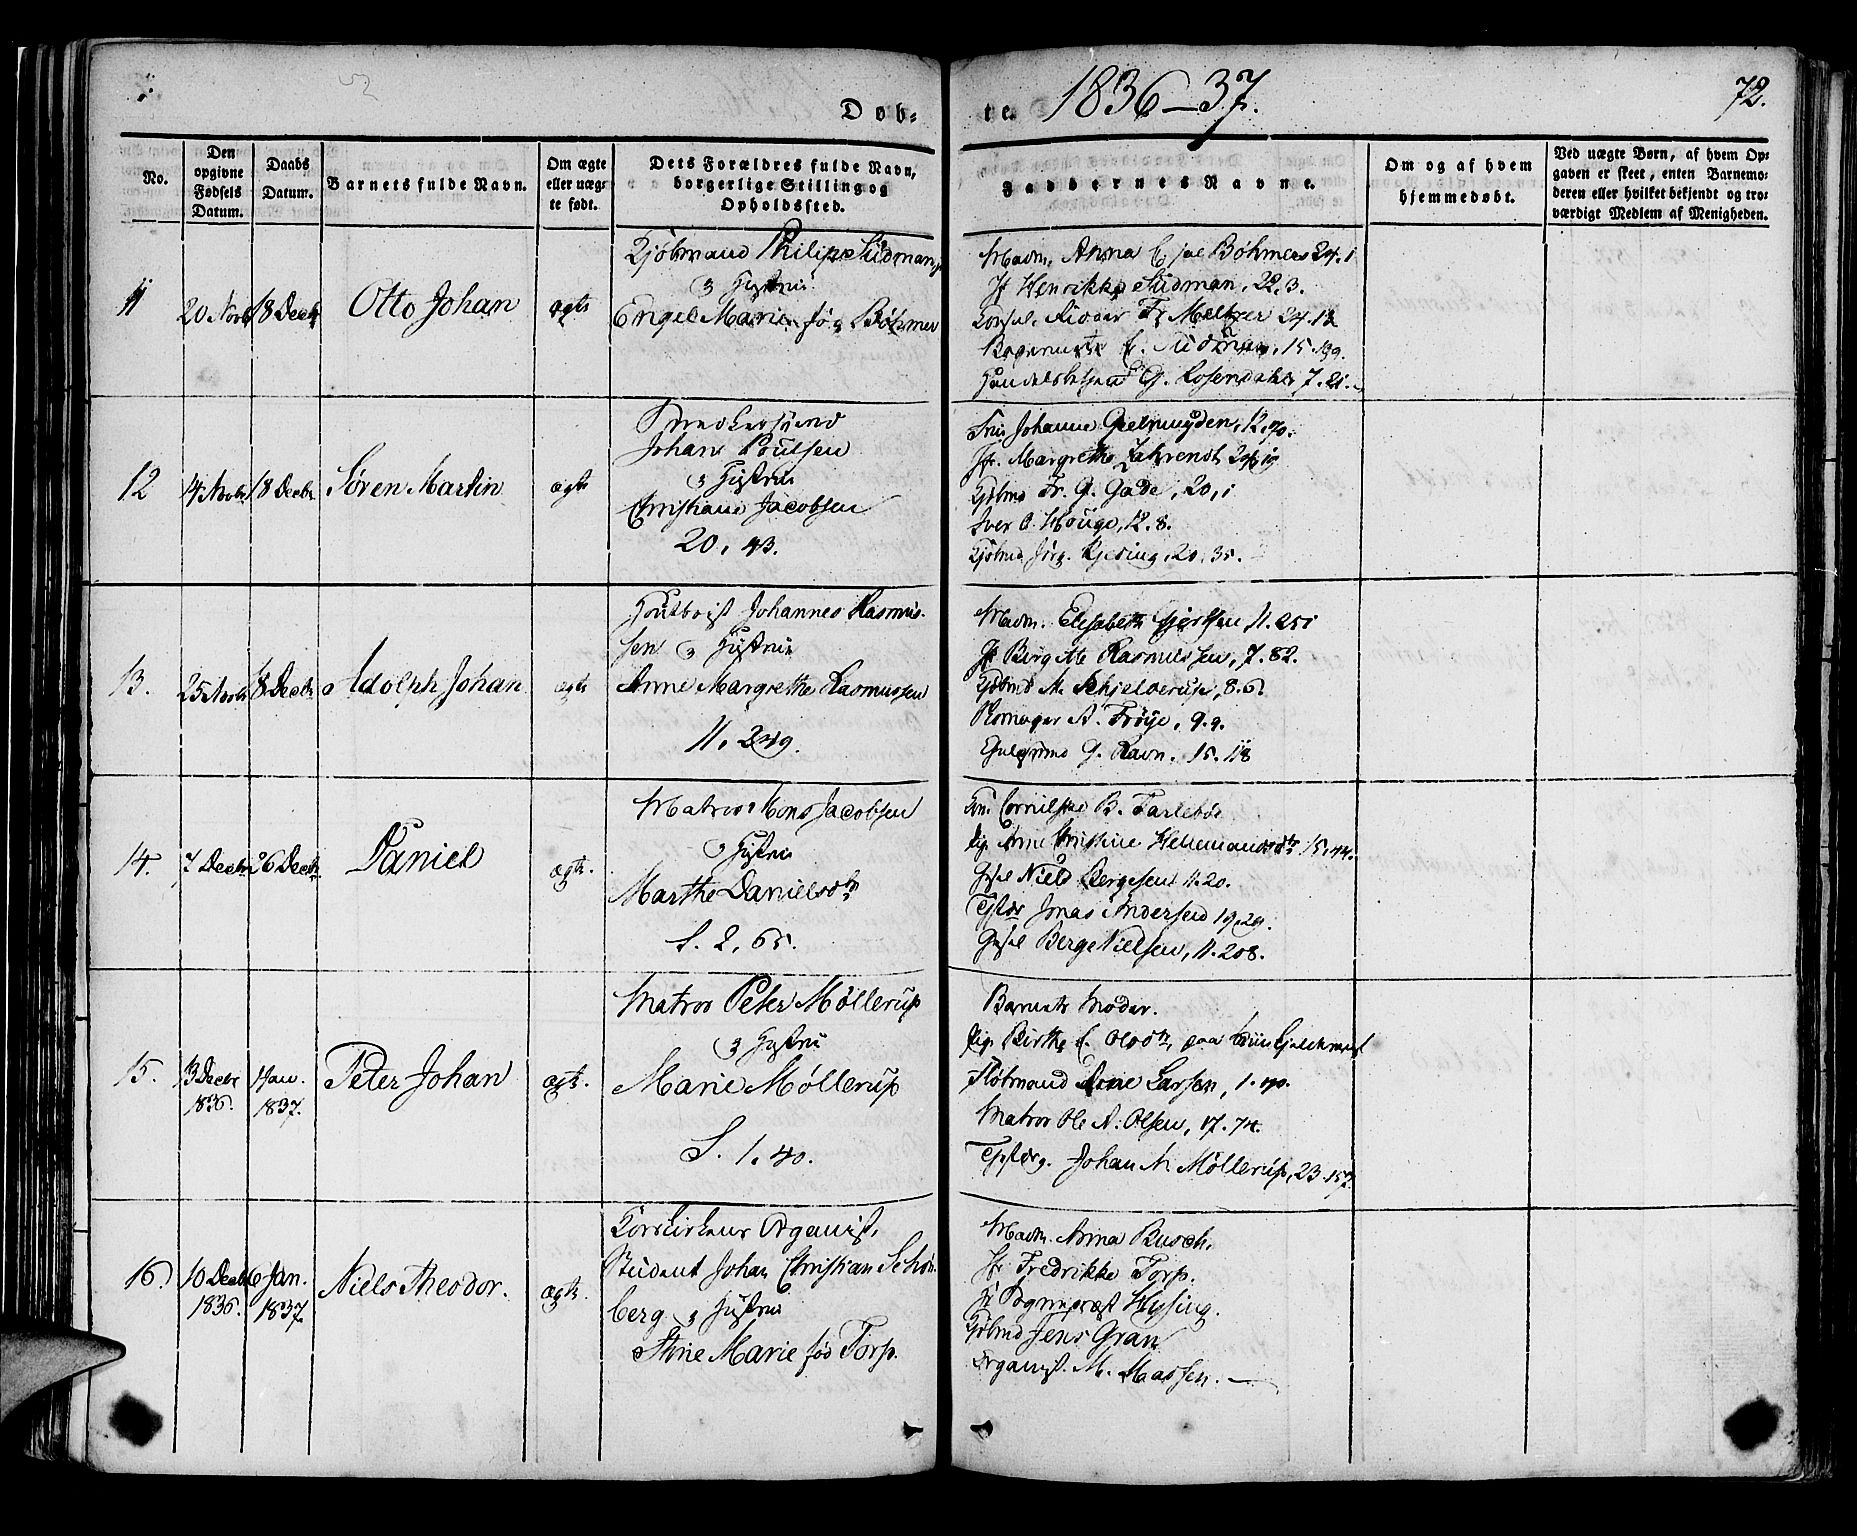 Døb-
te. 1836-37.
72.
No.
Den opgivne Fødsels Datum.
Daabs Datum.
Barnets fulde Navn.
Om ægte eller uægte født.
Dets Forældres fulde Navn, borgerlige Stilling og Opholdssted.
Faddernes Navne.
Om og af hvem hjemmedøbt.
Ved uægte Børn, af hvem Opgaven er skeet, enten Barnemoderen eller hvilket bekjendt og troværdigt Medlem af Menigheden.
11 20 Novb 18 Decbr Otto Johan ægte
Kjøbmand Philip Südmann
og Hustrue
Engel Marie fød Bøhmer
Madm. Anna Böhmer 24.1
Jf Henrikke Südman, 22.3.
Consul, Ridder Fr Meltzer 24.12
Südman, 15.139.
G. Rosendahl 7.21.
12 14 Novbr 18 Decbr Søren Martin ægte
Snedkersvend
Johan Poulsen
og Hustrue
Christiane Jacobsen
20, 43.
Frue Johanne Geelmuyden, 12.70.
Jfr. Margrethe Zahrendt
Kjøbmd Fr. G. Gade, 20, 1
Iver O. Houge, 12.8.
Kjøbmd Jørg. Kjeding, 20, 35.
13. 25 Novbr 18 Decbr Adolph Johan ægte
Houtboist Johannes Rasmus-
sen og Hustrue
Anne Margrethe Rasmussen
11. 249.
Madm. Elisabeth Gjertsen 11.251
Jf Birgitte Rasmussen, 7.82.
Kjøbmd M. Schjelderup, 8.6.
A. Frøye, 9.9.
Gulsmd G. Ravn. 15.118
14. 7 Decbr 26 Decbr Daniel ægte.
Matros Mons Jacobsen
og Hustrue
Marthe Danielsdtr
S. 2, 65.
Kon. B. Farlebøe
Pig. Anne Christine 15.44.
Niels Bergesen 11.20.
Jonas Andersen 19.29.
Berge Nielsen, 11.208.
15. 13 Decbr 1836. 1 Jan. 1837. Peter Johan ægte.
Matros Peter Møllerup
og Hustrue
Marie Møllerup
S. 1. 40.
Barnets Moder.
Pig. Birthe
Fløtmand Arne Larsen, 1.40.
Matros Ole A. Olsen, 17.74.
Johan M. Møllerup, 23.157.
16.) 10 Decbr 1836. 6 Jan. 1837. Niels Theodor. ægte.
Korskirkens Organist,
Student Johan Christian Schøn-
berg og Hustrue
Stine Marie fød Torp.
Madm. Anna Busch.
Jfr Fredrikke Torp.
Hr Sognepræst Hysing.
Kjøbmd Jens Gran
Organist. M. Maassen.